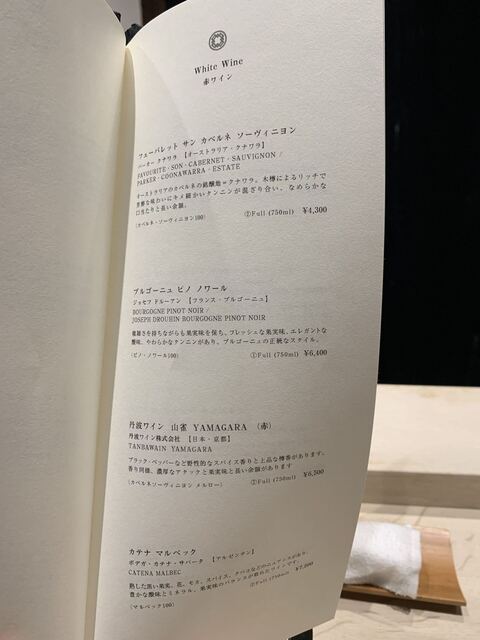 White Wine
赤ワイン
フェーバレット サン カベルネ ソーヴィニヨン
パーカー クナワラ 【オーストラリア・クナワラ】
FAVOURITE・SON・CABERNET・SAUVIGNON /
PARKER・COONAWARRA・ESTATE
オーストラリアのカベルネの銘醸地=クナワラ。木樽によるリッチで
芳醇な味わいにキメ細かいタンニンが混ざり合い、なめらかな
口当たりと長い余韻。
(カベルネ・ソーヴィニヨン100)
①Full (750ml) ¥4,300
ブルゴーニュ ピノ ノワール
ジョセフ ドルーアン 【フランス・ブルゴーニュ】
BOURGOGNE PINOT NOIR /
JOSEPH DROUHIN BOURGOGNE PINOT NOIR
複雑さを持ちながらも果実味を保ち、フレッシュな果実味、エレガントな
酸味、やわらかなタンニンがあり、ブルゴーニュの正統なスタイル。
(ピノ・ノワール100)
①Full (750ml) ¥6,400
丹波ワイン 山雀 YAMAGARA (赤)
丹波ワイン株式会社 【日本・京都】
TANBAWAIN YAMAGARA
ブラック・ペッパーなど野性的なスパイス香りと上品な樽香があります。
香り同様、濃厚なアタックと果実味と長い余韻があります
(カベルネソーヴィニヨン メルロー)
①Full (750ml) ¥6,500
カテナ マルベック
ボデガ・カテナ・サパータ 【アルゼンチン】
CATENA MALBEC
熟した黒い果実、花、モカ、スパイス、タバコなどのニュアンスがあり、
豊かな酸味とミネラル、果実味のバランスが取れたワインです。
(マルベック100)
①Full (750ml) ¥7,500